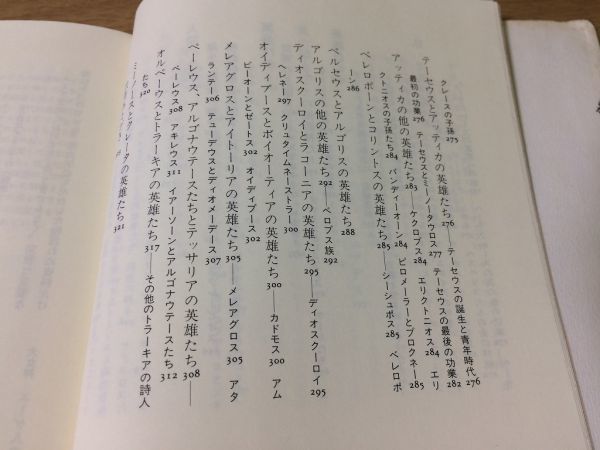 クレースの子孫 275
テーセウスとアッティカの英雄たち 276――テーセウスの誕生と青年時代 276
最初の功業 276　テーセウスとミーノータウロス 277　テーセウスの最後の功業 282
アッティカの他の英雄たち 283――ケクロプス 284　エリクトニオス 284　エリ
クトニオスの子孫たち 284　パンディーオーン 284　ピロメーラーとプロクネー 285
ペレロポーンとコリントスの英雄たち 285――シーシュポス 285　ペレロポ
ーン 286
ペルセウスとアルゴリスの英雄たち 288
アルゴリスの他の英雄たち 292――ペロプス族 292
ディオスクーロイとラコーニアの英雄たち 295――ディオスクーロイ 295
ヘレネー 297　クリュタイムネーストラー 300
オイディプースとボイオーティアの英雄たち 300――カドモス 300　アム
ピーオーンとゼートス 302　オイディプース 302
メレアグロスとアイトーリアの英雄たち 305――メレアグロス 305　アタ
ランテー 306　テューデウスとディオメーデース 307
ペーレウス、アルゴナウテースたちとテッサリアの英雄たち 308――
ペーレウス 308　アキレウス 311　イアーソーンとアルゴナウテースたち 312
オルペーウスとトラーキアの英雄たち 317――その他のトラーキアの詩人
たち 320
ミーノースとクレータの英雄たち 321